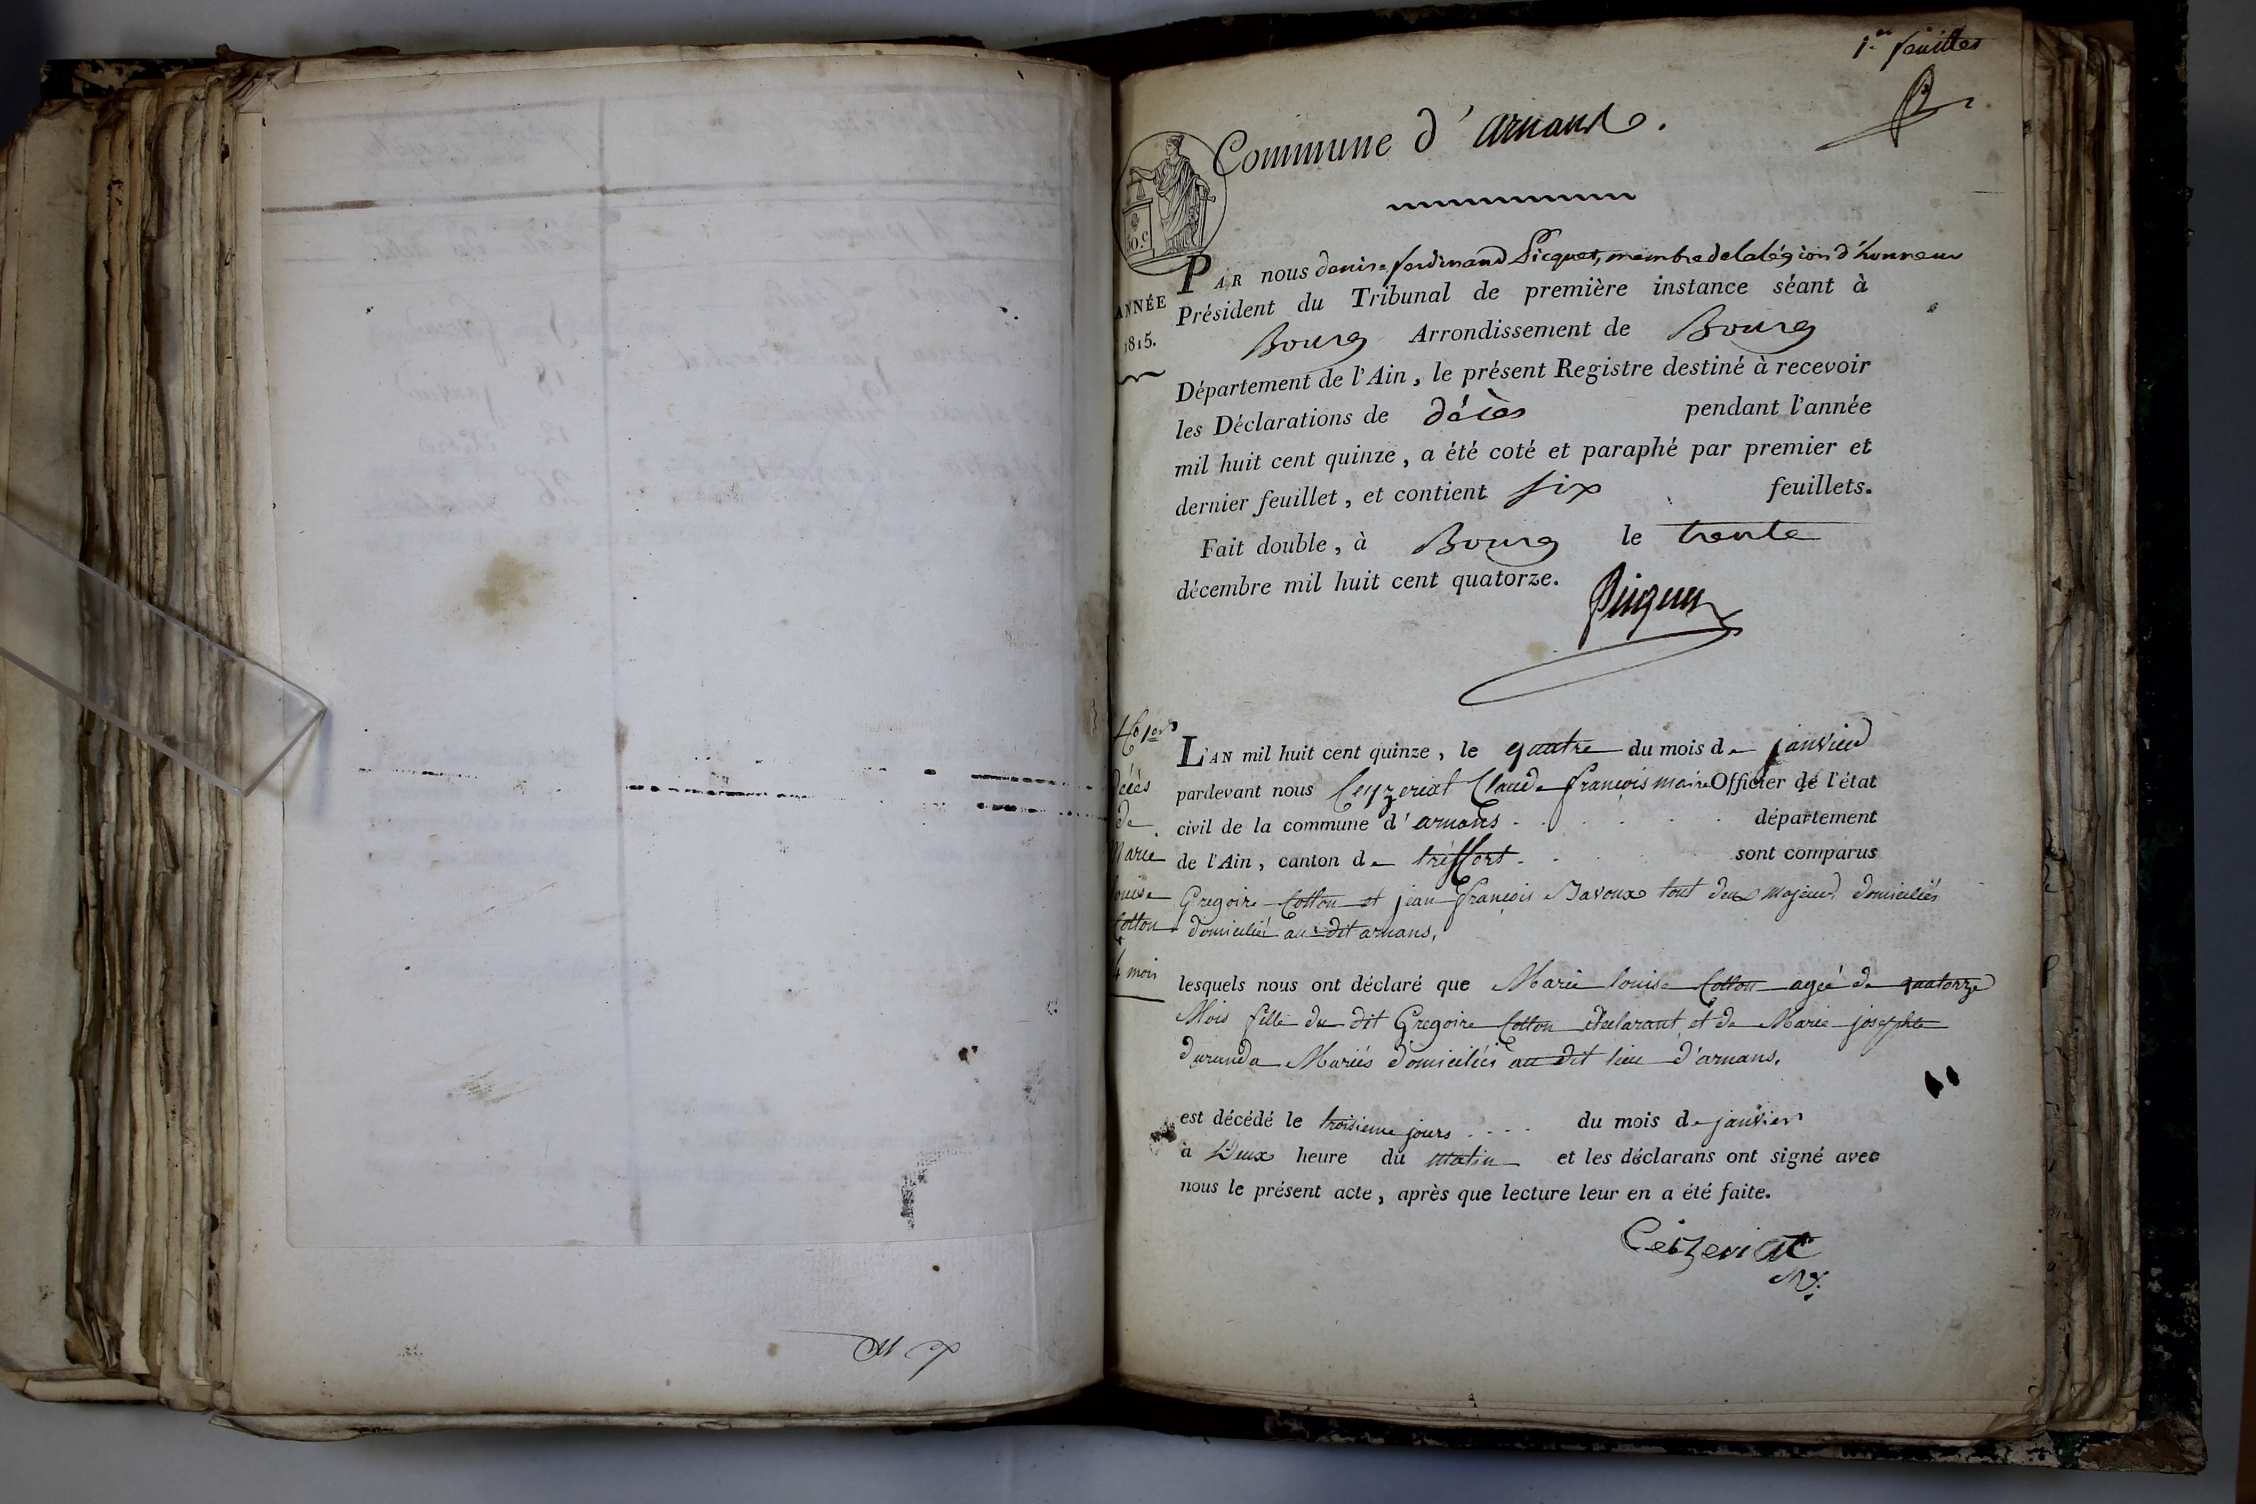 1er feuillet
Commune d'arnans.
50. c
ANNÉE
1815.
PAR nous denis ferdinand Picquet, membre de la légion d'honneur
Président du Tribunal de première instance séant à
Bourg Arrondissement de Bourg
Département de l'Ain, le présent Registre destiné à recevoir
les Déclarations de décès pendant l'année
mil huit cent quinze, a été coté et paraphé par premier et
dernier feuillet, et contient six feuillets.
Fait double, à Bourg le trente
décembre mil huit cent quatorze.
Picquet
décès
de
Marie
louise
Cotton
mois
L'AN mil huit cent quinze, le quatre du mois de janvier
pardevant nous Ceyzeriat Claude françois maire Officier de l'état
civil de la commune d'arnans département
de l'Ain, canton de tréffort sont comparus
Gregoire Cotton et jean françois Savoux tout deux majeurs domiciliés
domicilié au dit arnans,
lesquels nous ont déclaré que Marie louise Cotton agéé de quatorze
Mois fille du dit Gregoire Cotton déclarant et de Marie josephte
duranda Mariés domiciliés au dit lieu d'arnans,
est décédé le troisieme jours .... du mois de janvier
à Deux heure du matin et les déclarans ont signé avec
nous le présent acte, après que lecture leur en a été faite.
Ceizeriat